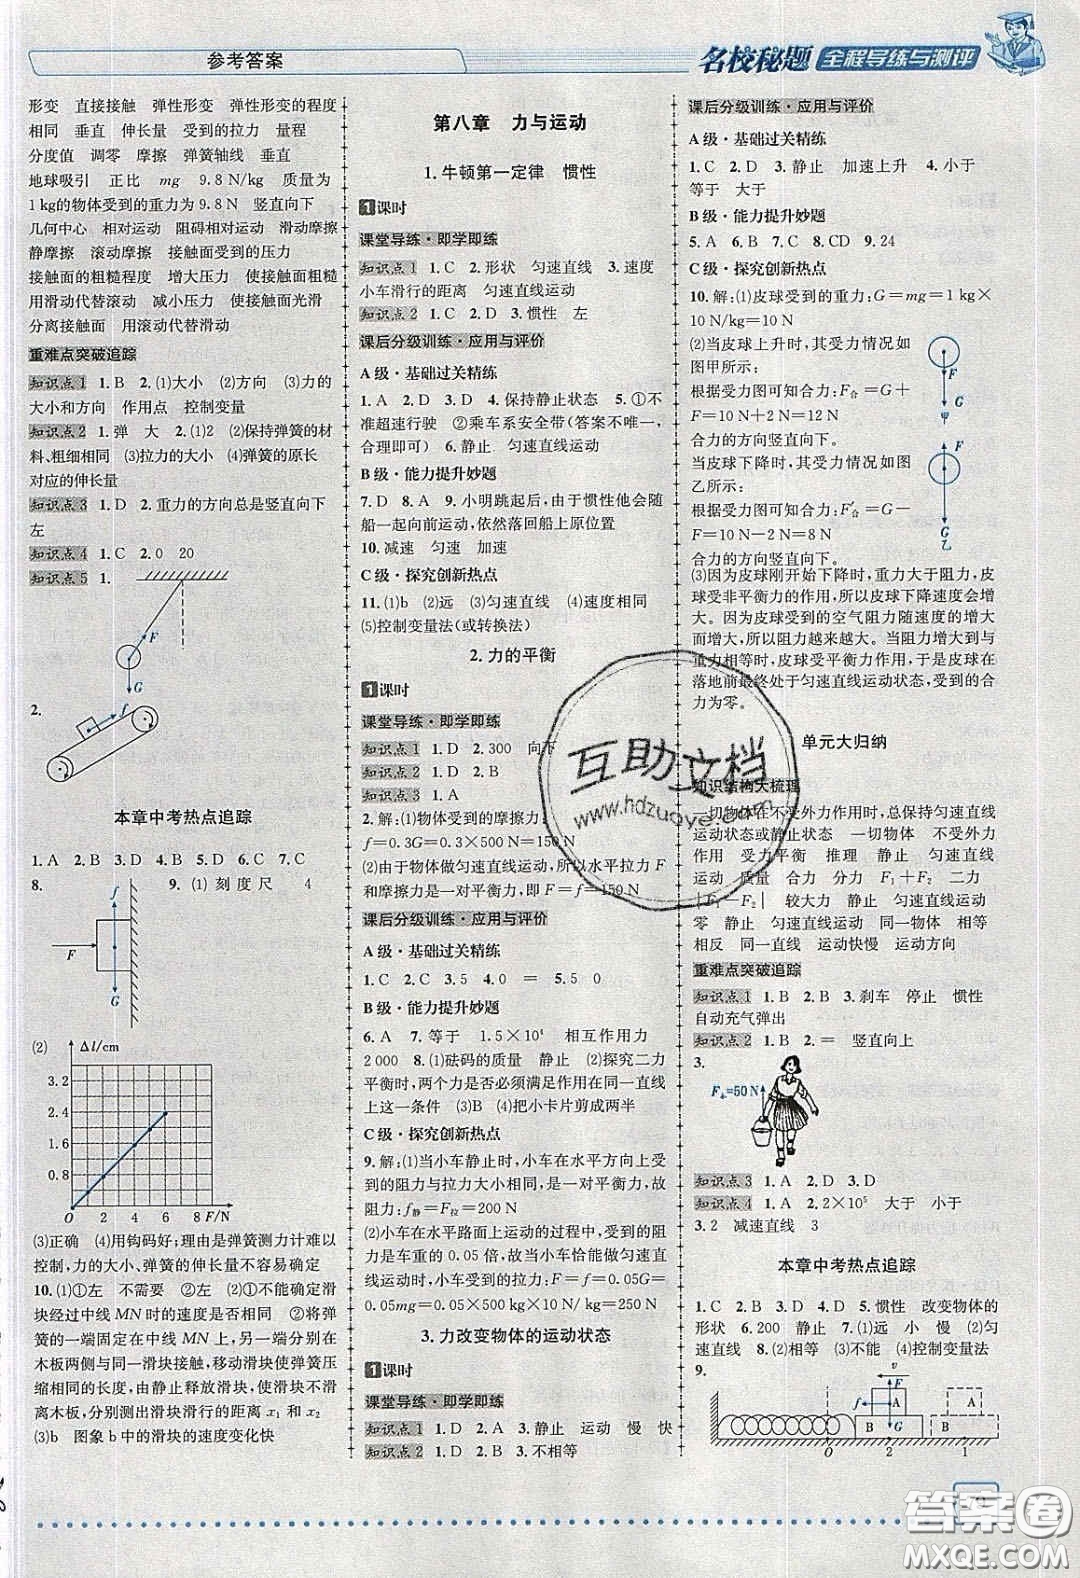 参考答案
名校秘题 全程导练与测评
形变 直接接触 弹性形变 弹簧的程度
相同 垂直 伸长量 受到的拉力 量程
分度值 调零 摩擦 弹簧轴线 垂直
地球吸引 正比 mg 9.8 N/kg 质量为
1 kg的物体受到的重力为9.8 N 竖直向下
几何中心 相对运动 阻碍相对运动 滑动摩擦
静摩擦 滚动摩擦 接触面受到的压力
接触面的粗糙程度 增大压力 使接触面粗糙
用滑动代替滚动 减小压力 使接触面光滑
分离接触面 用滚动代替滑动
重难点突破追踪
知识点1 1.B 2.(1)大小 (2)方向 (3)力的
大小和方向 作用点 控制变量
知识点2 1.弹 大 2.(1)2 (2)保持弹簧的材
料、粗细相同 (3)拉力的大小 (4)弹簧的原长
对应的伸长量
知识点3 1.D 2.重力的方向总是竖直向下
左
知识点4 1.C 2.0 20
知识点5 1.
F
G
2.
f
本章中考热点追踪
1.A 2.B 3.D 4.B 5.D 6.C 7.C
8.
9.(1)刻度尺 4
f
F
G
(2)
Δl/cm
3.2
2.4
1.6
0.8
O 2 4 6 8 F/N
(3)正确 (4)用钩码好;理由是弹簧测力计难以
控制,力的大小、弹簧的伸长量不容易确定
10.(1)①左 不需要 ②左 (2)①不能确定滑
块经过中线MN时的速度是否相同 ②将弹
簧的一端固定在中线MN上,另一端分别在
木板两侧与同一滑块接触,移动滑块使弹簧压
缩相同的长度,由静止释放滑块,直至滑块滑
离木板,分别测出滑块滑行的距离x₁和x₂
(3)b 图象b中的滑块的速度变化快
第八章 力与运动
1.牛顿第一定律 惯性
1课时
课堂导练·即学即练
知识点1 1.C 2.形状 匀速直线 3.速度
小车滑行的距离 匀速直线运动
知识点2 1.C 2.D 3.惯性 左
课后分级训练·应用与评价
A级·基础过关精练
1.A 2.D 3.D 4.保持静止状态 5.①不
准超速行驶 ②乘车系安全带(答案不唯一,
合理即可) 6.静止 匀速直线运动
B级·能力提升妙题
7.D 8.A 9.小明跳起后,由于惯性他会随
船一起向前运动,依然落回船上原位置
10.减速 匀速 加速
C级·探究创新热点
11.(1)b (2)远 (3)匀速直线 (4)速度相同
(5)控制变量法(或转换法)
2.力的平衡
1课时
课堂导练·即学即练
知识点1 1.D 2.300 向下
知识点2 1.D 2.B
知识点3 1.A
2.解:(1)物体受到的摩擦力:
f=0.3G=0.3×500 N=150 N
(2)由于物体做匀速直线运动,所以水平拉力F
和摩擦力是一对平衡力,即F=f=150 N
课后分级训练·应用与评价
A级·基础过关精练
1.C 2.C 3.5 4.0 = 5.5 0
B级·能力提升妙题
6.A 7.等于 1.5×10⁴ 相互作用力
2 000 8.(1)砝码的质量 静止 (2)探究二力
平衡时,两个力是否必须满足作用在同一直线
上这一条件 (3)B (4)把小卡片剪成两半
C级·探究创新热点
9.解:(1)当小车静止时,小车在水平方向上受到
的阻力与拉力大小相等,方向相反,彼此平衡,故
拉力:f静=F拉=20 N
(2)小车在水平路面上运动的过程中,受到的阻
力为车重的0.05倍,故当小车恰能做匀速直线
运动时,牵引力与阻力平衡:F=f=0.05G=
0.05mg=0.05×500 kg×10 N/kg=250 N
3.力改变物体的运动状态
1课时
课堂导练·即学即练
知识点1 1.D 2.A 3.静止 运动 慢 快
知识点2 1.D 2.B 3.不相等
课后分级训练·应用与评价
A级·基础过关精练
1.C 2.D 3.静止 加速上升 4.小于
等于 大于
B级·能力提升妙题
5.A 6.B 7.C 8.CD 9.24
C级·探究创新热点
10.解:(1)皮球受到的重力:G=mg=1 kg×
10 N/kg=10 N
(2)当皮球上升时,其受力情况如
图甲所示:
根据受力图可知合力:F合=G+
F=10 N+2 N=12 N
合力的方向竖直向下。
当皮球下降时,其受力情况如图
乙所示:
根据受力图可知合力:F′合=G-
F=10 N-2 N=8 N
合力的方向竖直向下。
F
G
甲
F
G
乙
(3)因为皮球刚开始下降时,重力大于阻力,皮
球受非平衡力的作用,所以皮球下降速度会增
大。因为皮球受到的空气阻力随速度的增大
而增大,所以阻力越来越大。当阻力增大到与
重力相等时,皮球受平衡力作用,所以皮球在
落地前最终处于匀速直线运动状态,受到的合
力为零。
单元大归纳
知识结构大梳理
一切物体在不受外力作用时,总保持匀速直线
运动状态或静止状态 一切物体 不受外力
作用 受力平衡 推理 静止 匀速直线
运动 质量 合力 分力 F₁+F₂ 二力
|F₁-F₂| 较大力 静止 匀速直线运动
零 静止 匀速直线运动 同一物体 相等
相反 同一直线 运动快慢 运动方向
重难点突破追踪
知识点1 1.B 2.B 3.刹车 停止 惯性
自动充气弹出
知识点2 1.B 2.= 竖直向上
3.
F人=50 N
知识点3 1.A 2.D 3.D
知识点4 1.A 2.2×10⁵ 大于 小于
3.2 减速直线 3
本章中考热点追踪
1.C 2.B 3.D 4.D 5.惯性 改变物体的
形状 6.200 静止 7.(1)远 小 慢 (2)匀
速直线 8.(2)相等 (3)不能 (4)控制变量法
9.
v
F
f
A
A
B
G
B
O 2 1
互助文档
www.hdzuoye.com
答案圈
MXQE.COM